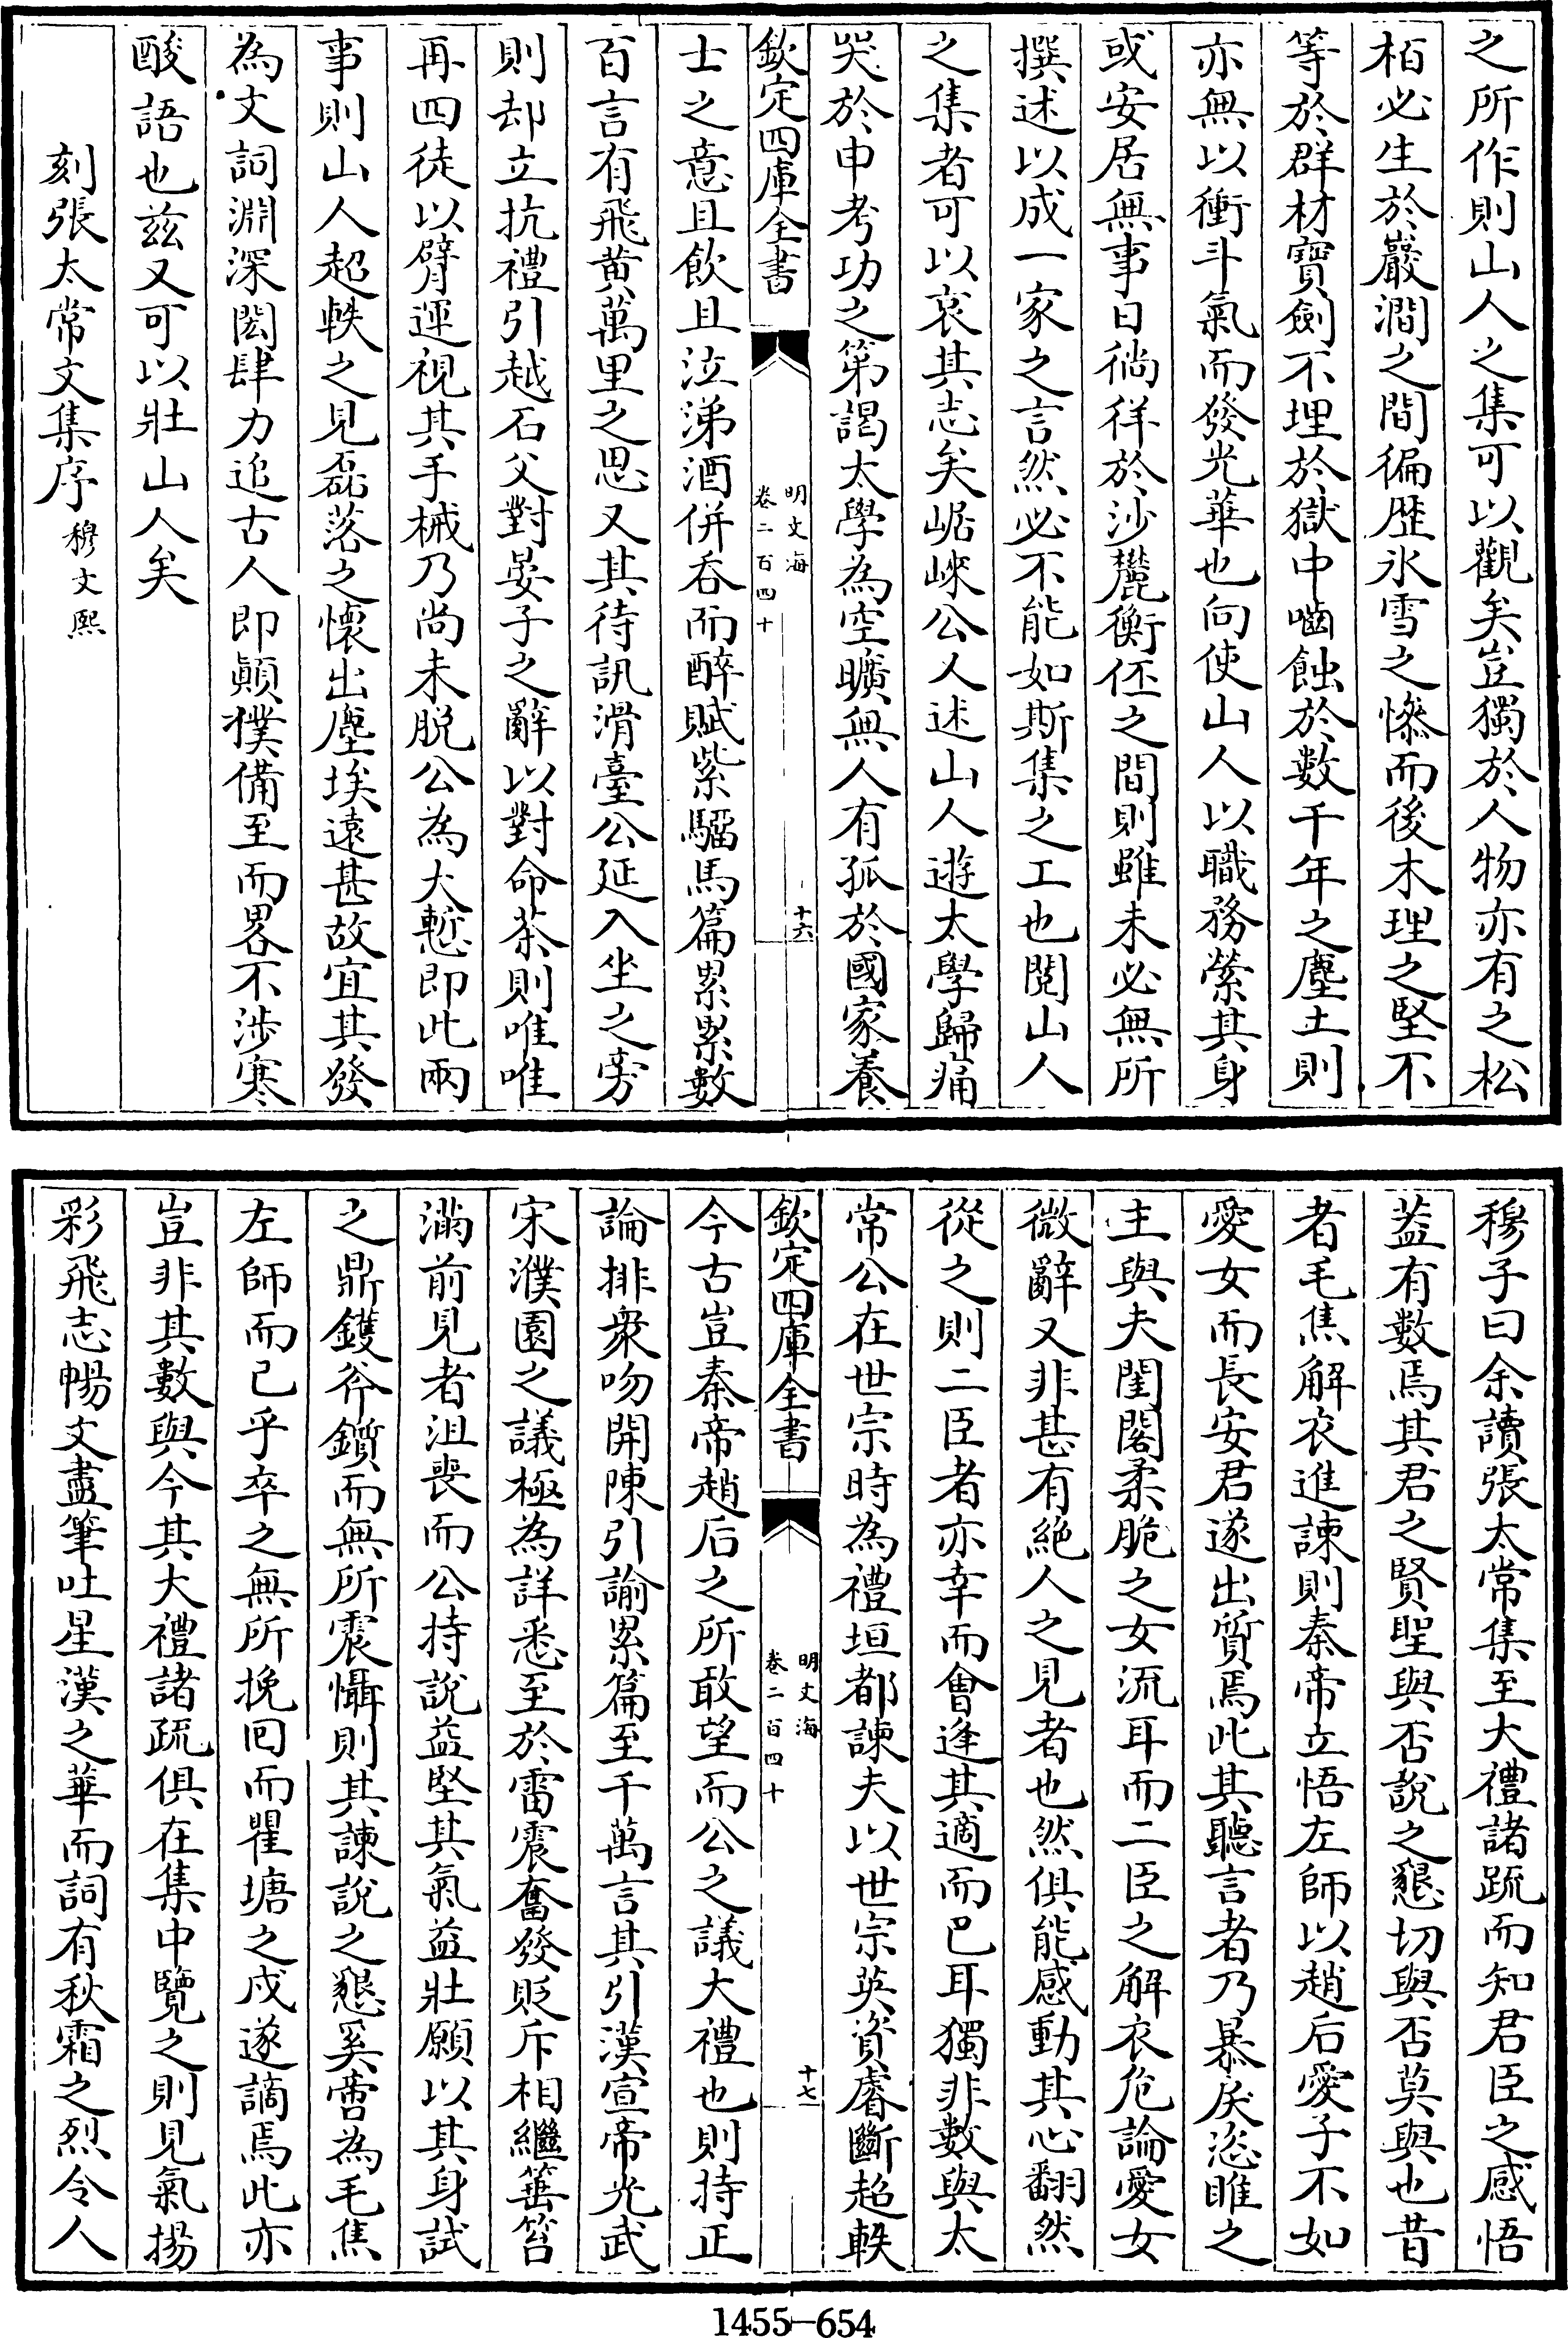 之所作則山人之集可以觀矣豈獨於人物亦有之松
栢必生於巖澗之間徧歴氷雪之慘而後木理之堅不
等於群材寳劍不埋於獄中嚙蝕於數千年之塵土則
亦無以衝斗氣而發光華也向使山人以職務縈其身
或安居無事日徜徉於沙麓衡伾之間則雖未必無所
撰述以成一家之言然必不能如斯集之工也閱山人
之集者可以哀其志矣岷崍公人述山人遊太學歸痛
哭於申考功之第謁太學為空曠無人有孤於國家養
欽定四庫全書
明文海
卷二百四十
十六
士之意且飲且泣涕酒併呑而醉賦紫騮馬篇累累數
百言有飛黄萬里之思又其待訊滑臺公延入坐之旁
則却立抗禮引越石父對晏子之辭以對命茶則唯唯
再四徒以臂運視其手械乃尚未脱公為大慙即此兩
事則山人超軼之見磊落之懷出塵埃逺甚故宜其發
為文詞淵深閎肆力追古人即顛撲備至而畧不渉寒
酸語也兹又可以壯山人矣
刻張太常文集序 穆文熙
穆子曰余讀張太常集至大禮諸疏而知君臣之感悟
葢有數焉其君之賢聖與否説之懇切與否莫與也昔
者毛焦解衣進諫則秦帝立悟左師以趙后愛子不如
愛女而長安君遂出質焉此其聽言者乃暴戾恣睢之
主與夫閨閣柔脆之女流耳而二臣之解衣危論愛女
微辭又非甚有絶人之見者也然俱能感動其心翻然
從之則二臣者亦幸而會逢其適而已耳獨非數與太
常公在世宗時為禮垣都諫夫以世宗英資睿斷超軼
欽定四庫全書
明文海
卷二百四十
十七
今古豈秦帝趙后之所敢望而公之議大禮也則持正
論排衆吻開陳引諭累篇至千萬言其引漢宣帝光武
宋濮園之議極為詳悉至於雷震奮發貶斥相繼箠笞
滿前見者沮喪而公持説益堅其氣益壯願以其身試
之鼎鑊斧鑕而無所震懾則其諫説之懇奚啻為毛焦
左師而已乎卒之無所挽囘而瞿塘之戍遂謫焉此亦
豈非其數與今其大禮諸疏俱在集中覽之則見氣揚
彩飛志暢文盡筆吐星漢之華而詞有秋霜之烈令人
1455—654